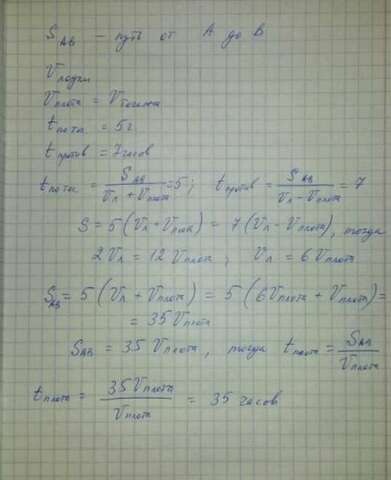 S_AB – путь от A до B
V лодки
V плота = V течения
t по теч = 5 г
t против = 7 часов
t по теч = S_AB / (V_л + V_плота) = 5 ; t против = S_AB / (V_л – V_плота) = 7
S = 5 (V_л + V_плота) = 7 (V_л – V_плота), тогда
2 V_л = 12 V_плота ; V_л = 6 V_плота
S_AB = 5 (V_л + V_плота) = 5 (6 V_плота + V_плота) =
= 35 V_плота
S_AB = 35 V_плота , тогда t_плота = S_AB / V_плота
t_плота = 35 V_плота / V_плота = 35 часов